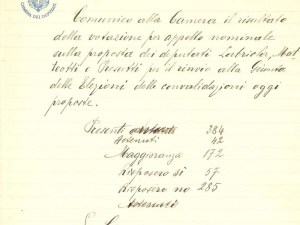 Comunico alla Camera il risultato
della votazione per appello nominale
sulla proposta dei deputati Labriola, Mat
teotti e Presutti per il rinvio alla Giunta
delle Elezioni delle convalidazioni oggi
proposte.
Presenti 384
Astenuti 42
Maggioranza 172
Risposero sì 57
Risposero no 285
Astenuti